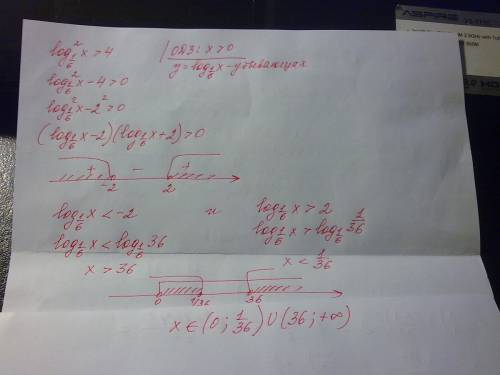 log²_{1/6} x > 4
ОДЗ: x > 0
y = log_{1/6} x - убывающая
log²_{1/6} x - 4 > 0
log²_{1/6} x - 2² > 0
(log_{1/6} x - 2)(log_{1/6} x + 2) > 0
+ - +
-2 2
log_{1/6} x < -2 и log_{1/6} x > 2
log_{1/6} x < log_{1/6} 36 log_{1/6} x > log_{1/6} 1/36
x > 36 x < 1/36
0 1/36 36
x ∈ (0; 1/36) ∪ (36; +∞)
ASPIRE